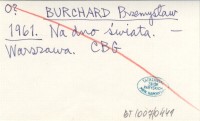 O?
BURCHARD Przemysław
1961. Na dno świata. —
Warszawa. CBG
BT1007/0449